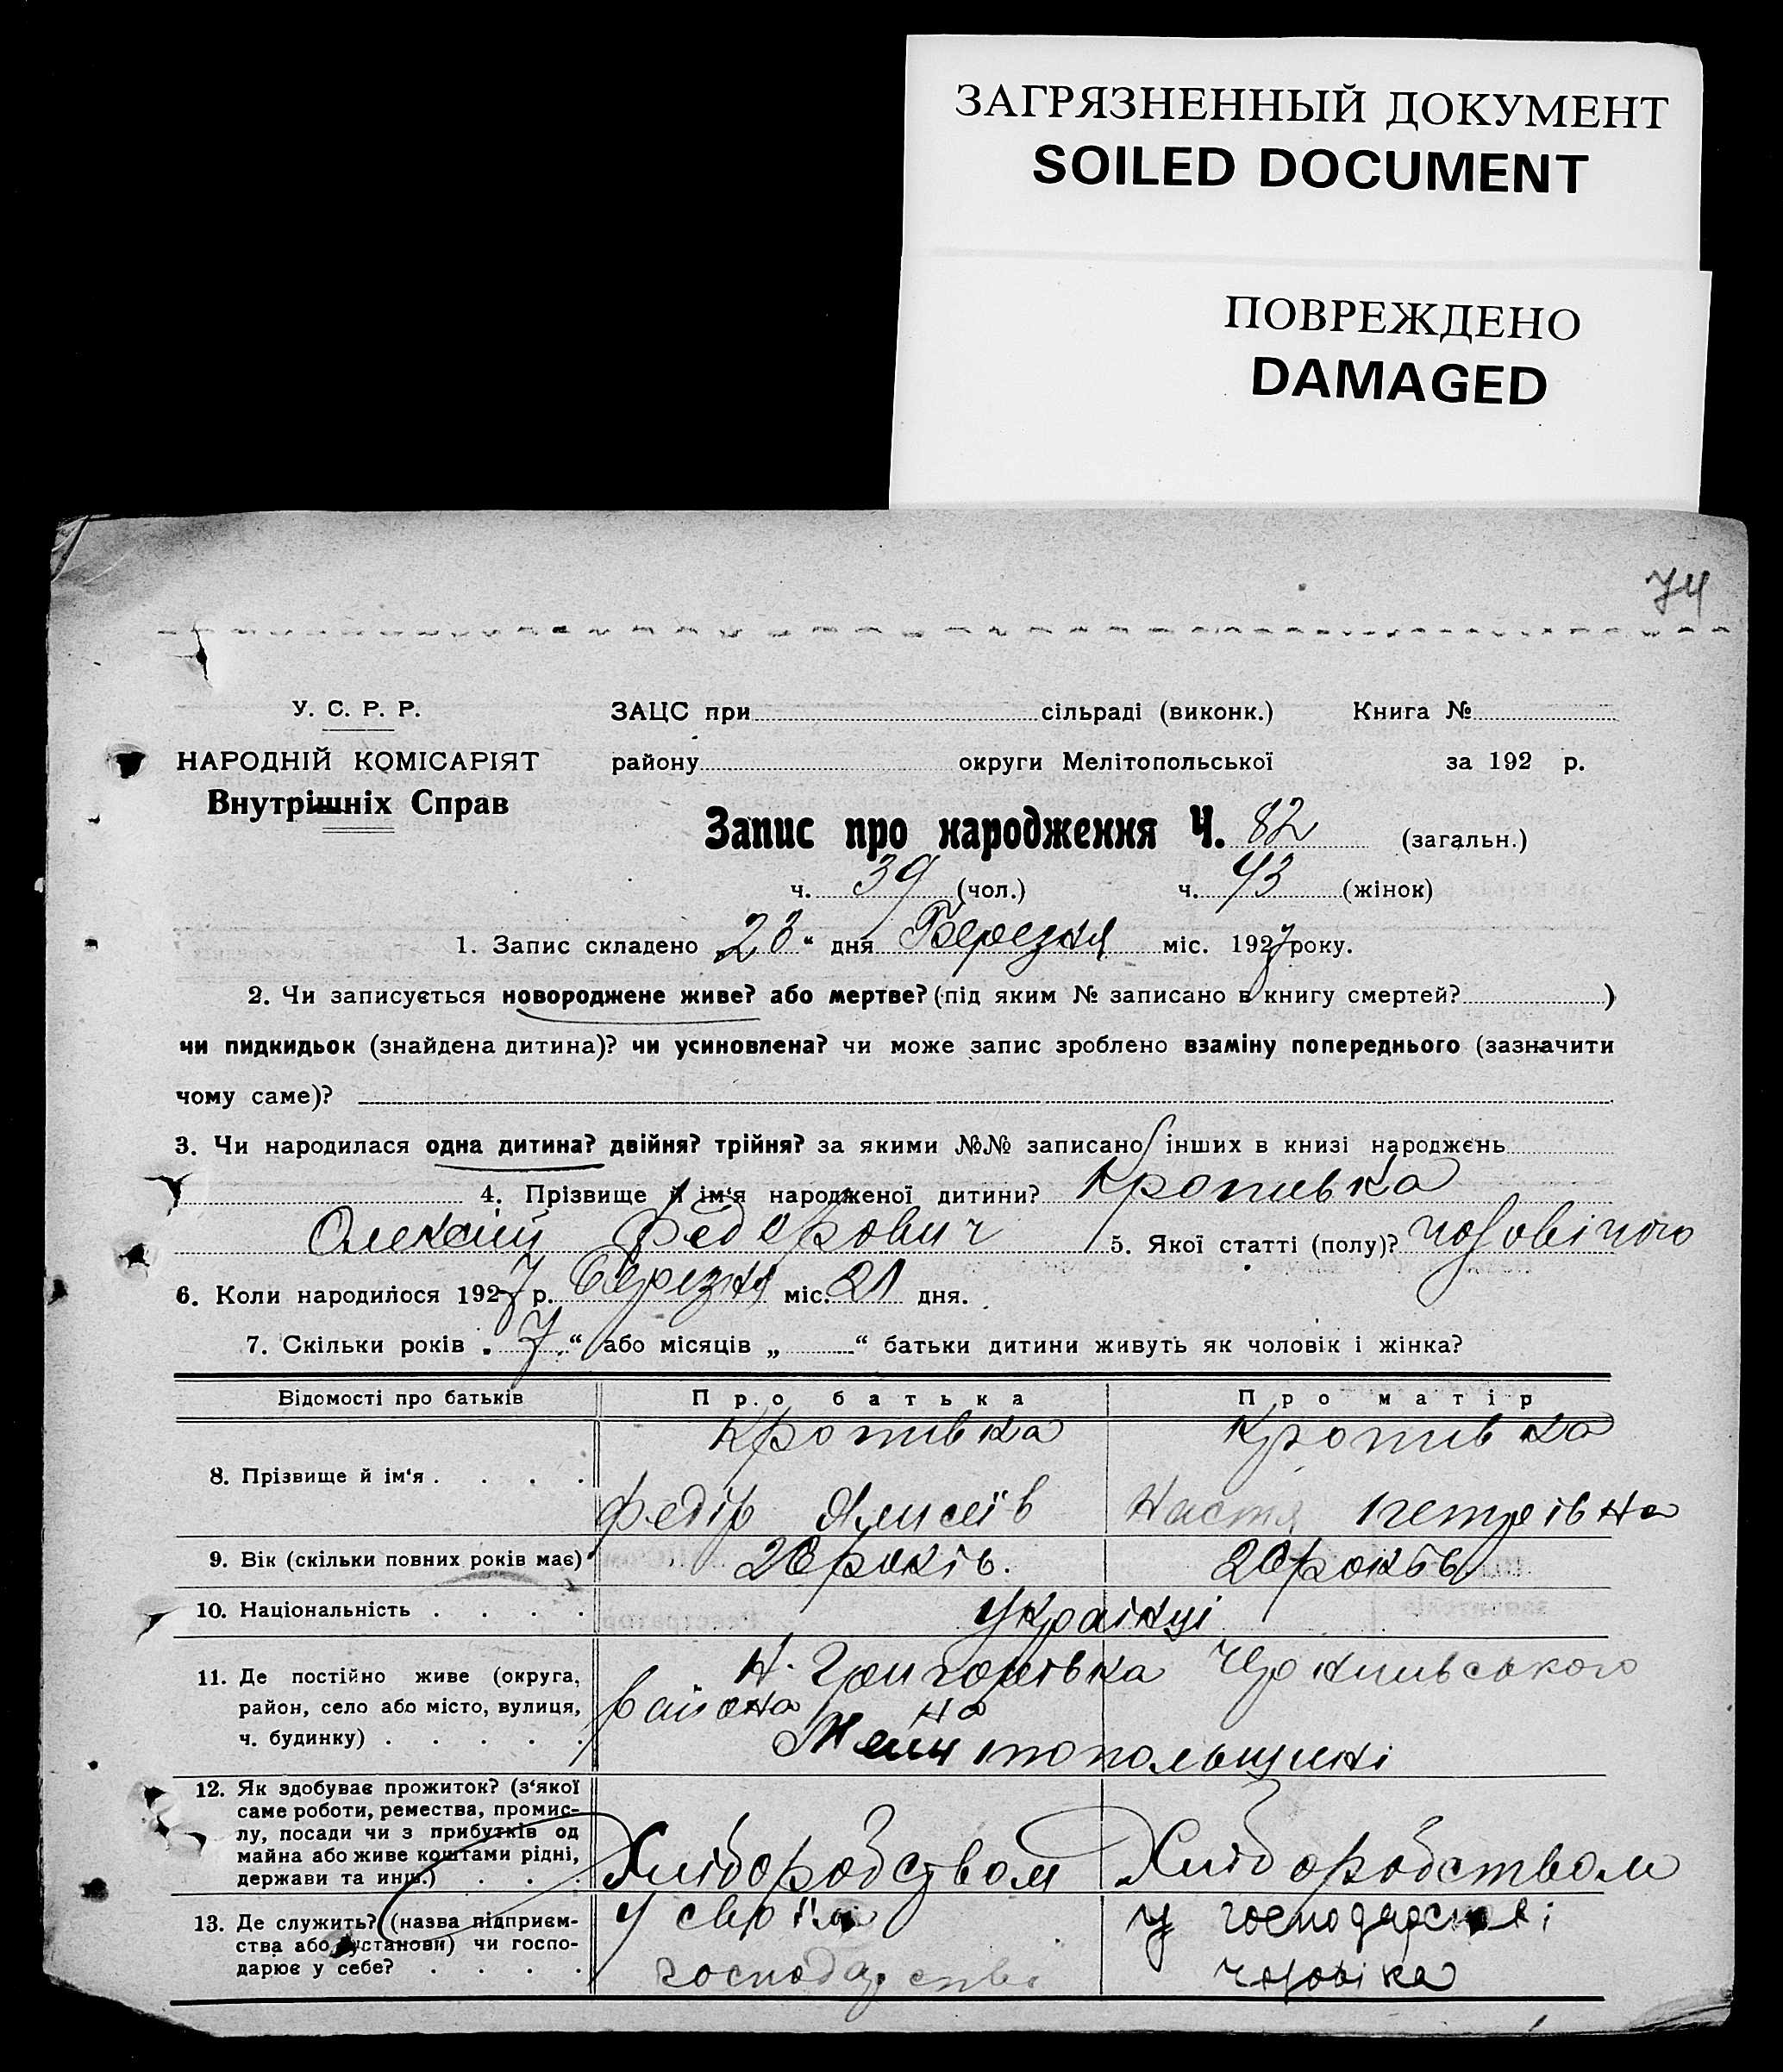 ЗАГРЯЗНЕННЫЙ ДОКУМЕНТ
SOILED DOCUMENT
ПОВРЕЖДЕНО
DAMAGED
74
У. С. Р. Р.
НАРОДНІЙ КОМІСАРІЯТ
Внутрішніх Справ
ЗАЦС при сільраді (виконк.) Книга №
району округи Мелітопольської за 192 р.
Запис про народження Ч. 82 (загальн.)
ч. 39 (чол.) ч. 43 (жінок)
1. Запис складено „23“ дня Березня міс. 1927 року.
2. Чи записується новороджене живе? або мертве? (під яким № записано в книгу смертей? )
чи пидкидьок (знайдена дитина)? чи усиновлена? чи може запис зроблено взаміну попереднього (зазначити
чому саме)?
3. Чи народилася одна дитина? двійня? трійня? за якими №№ записано інших в книзі народжень
4. Прізвище й ім'я народженої дитини? Кропивка
Олексій Федорович 5. Якої статті (полу)? чоловічого
6. Коли народилося 1927 р. Березня міс. 21 дня.
7. Скільки років „7“ або місяців „ “ батьки дитини живуть як чоловік і жінка?
Відомості про батьків Про батька Про матір
8. Прізвище й ім'я . . . . Кропивка Кропивка
Федір Алисеїв Настя Петрівна
9. Вік (скільки повних років має) років. років
10. Національність . . . . Українці
11. Де постійно живе (округа,
район, село або місто, вулиця,
ч. будинку) . . . . .
Н. Григорівка
района на
Мелитопольщині
12. Як здобуває прожиток? (з'якої
саме роботи, ремества, промис-
лу, посади чи з прибутків од
майна або живе коштами рідні,
держави та инш.) . . .
Хліборобством Хліборобством
13. Де служить? (назва підприєм-
ства або установи) чи госпо-
дарює у себе? . . . .
у своїм у господарстві
господарстві чоловіка